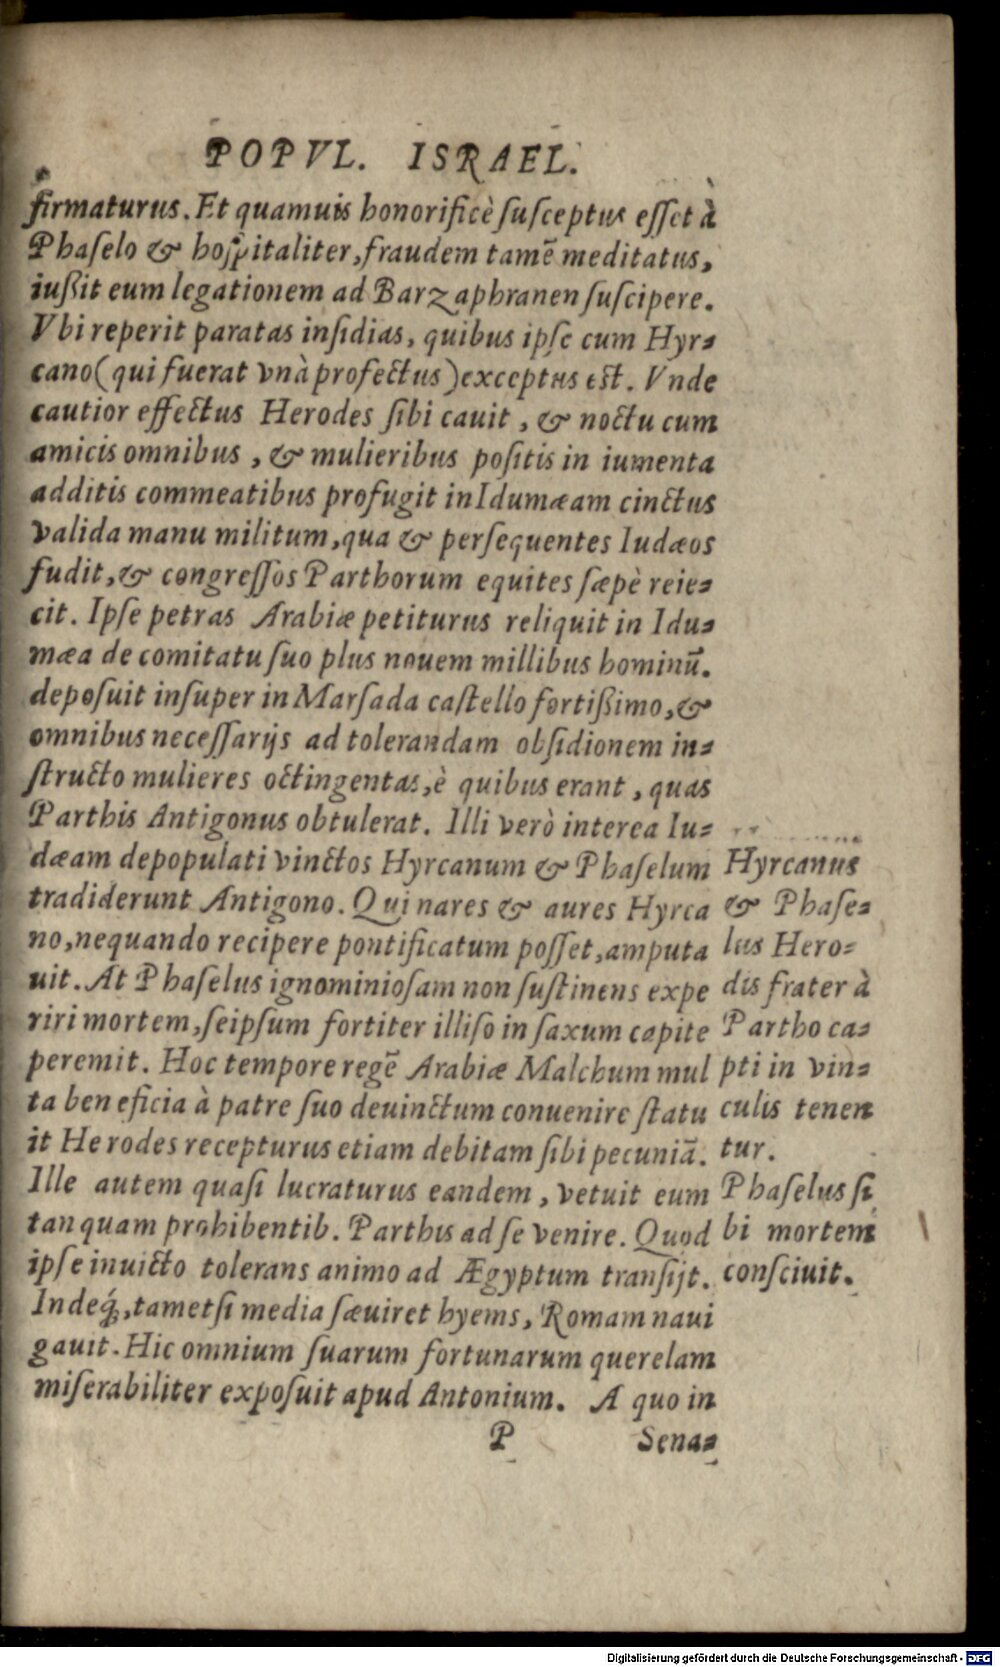 POPVL. ISRAEL.
firmaturus. Et quamuis honorificè susceptus esset à
Phaselo & hospitaliter, fraudem tamē meditatus,
iußit eum legationem ad Barzaphranen suscipere.
Vbi reperit paratas insidias, quibus ipse cum Hyr-
cano (qui fuerat vnà profectus) exceptus est. Vnde
cautior effectus Herodes sibi cauit, & noctu cum
amicis omnibus, & mulieribus positis in iumenta
additis commeatibus profugit in Idumæam cinctus
valida manu militum, qua & persequentes Iudæos
fudit, & congressos Parthorum equites sæpè reie-
cit. Ipse petras Arabiæ petiturus reliquit in Idu-
mæa de comitatu suo plus nouem millibus hominū.
deposuit insuper in Marsada castello fortißimo, &
omnibus necessarijs ad tolerandam obsidionem in-
structo mulieres octingentas, è quibus erant, quas
Parthis Antigonus obtulerat. Illi verò interea Iu-
dæam depopulati vinctos Hyrcanum & Phaselum
tradiderunt Antigono. Qui nares & aures Hyrca
no, nequando recipere pontificatum posset, amputa
uit. At Phaselus ignominiosam non sustinens expe
riri mortem, seipsum fortiter illiso in saxum capite
peremit. Hoc tempore regē Arabiæ Malchum mul
ta beneficia à patre suo deuinctum conuenire statu
it Herodes recepturus etiam debitam sibi pecuniā.
Ille autem quasi lucraturus eandem, vetuit eum
tanquam prohibentib. Parthis ad se venire. Quod
ipse inuicto tolerans animo ad Ægyptum transijt.
Indeq́;, tametsi media sæuiret hyems, Romam naui
gauit. Hic omnium suarum fortunarum querelam
miserabiliter exposuit apud Antonium. A quo in
P Sena-
Hyrcanus
& Phase-
lus Hero-
dis frater à
Partho ca-
pti in vin-
culis tenen
tur.
Phaselus si
bi mortem
consciuit.
Digitalisierung gefördert durch die Deutsche Forschungsgemeinschaft - DFG